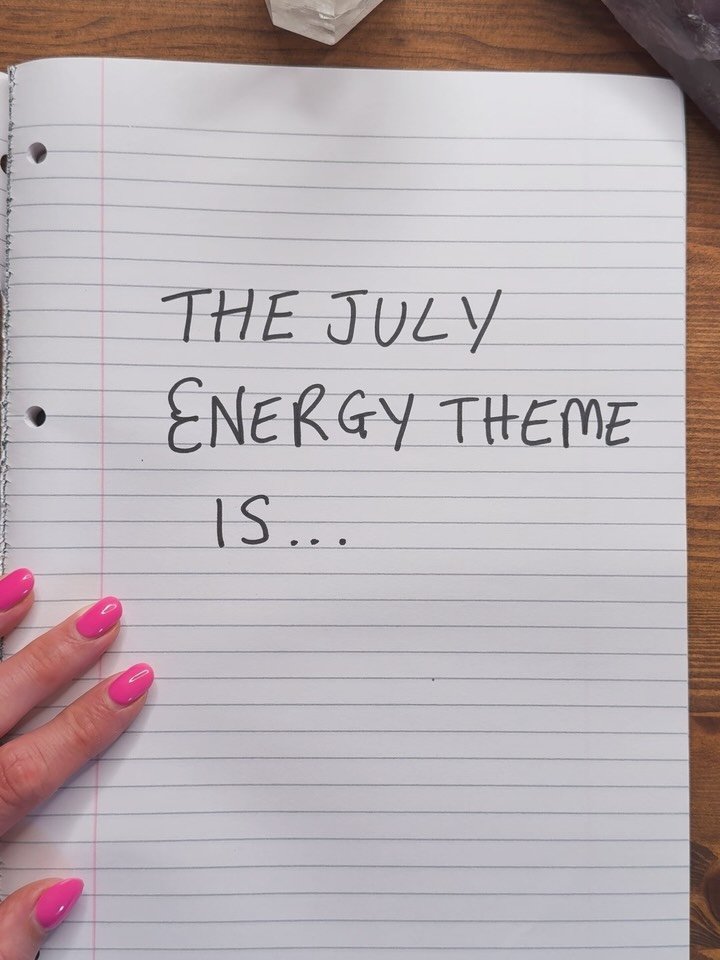 THE JULY
ENERGY THEME
IS...